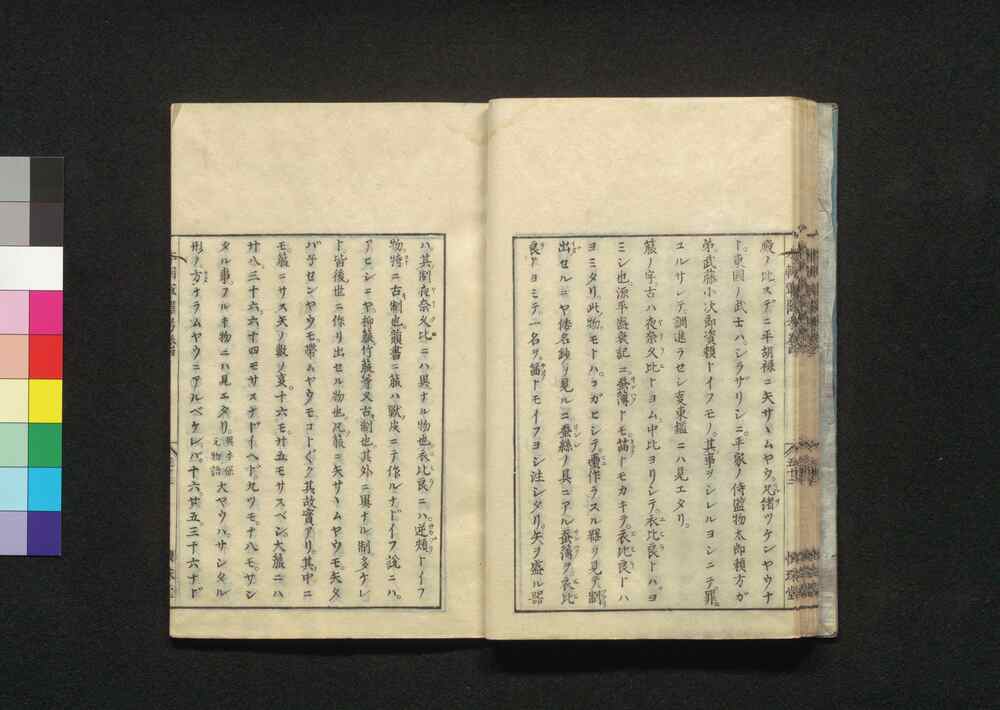 殿ノ比スデニ平胡禄ニ矢サヽムヤウ。兄緒ツケンヤウナ
ト。東國ノ武士ハシラザリシニ。平家ノ侍監物太郎頼方ガ
弟。武藤小次郎資頼トイフモノ。其事ヲシレルヨシニテ罪。
ユルサレテ調進ラセシ支東鑑ニハ見エタリ。
箙ノ字古ハ夜奈久比トヨム中比ヨリシテ。衣比良トハヨ
ミシ也源平盛衰記ニ蚕簿トモ。箙トモカキテ。衣比良トハ
ヨミタリ。此物。モトハ。コガヒシテ。繭作ラスル器ヲ見テ割
出セルニヤ倭名鈔ヲ見ルニ蚕絲ノ具ニアル蚕簿ヲ衣比
良トヨミテ一名ヲ。箙トモイフヨシ注シタリ矢ヲ盛ル器
ハ其制夜奈久比ニハ異ナル物也。衣比良ニハ。逆頬トイフ
物。特ニ古制也。韻書ニ箙ハ獣皮ニテ作ルナドイフ説ニハ。
アヒシニヤ柳箙竹箙等又古制也其外ニ異ナル制多ケレ
ト皆後世ニ作リ出セル物也凡箙ニ矢サヽムヤウモ矢タ
バ子センヤウモ。帯ムヤウモ。コトぐク其故實アリ。其中ニ
モ。箙ニサス矢ノ數ノ支。十六モ。廿五モサスベシ。大箙ニハ
廿八三十六六十四モサスナドイヘド。九ツモ。十八モ。サシ
タル事。フルキ物ニハ見エタリ。元物語大ヤウハ。サシタル
形ノ方ナラムヤウニアルベケレバ。十六。廿五三十六ナド